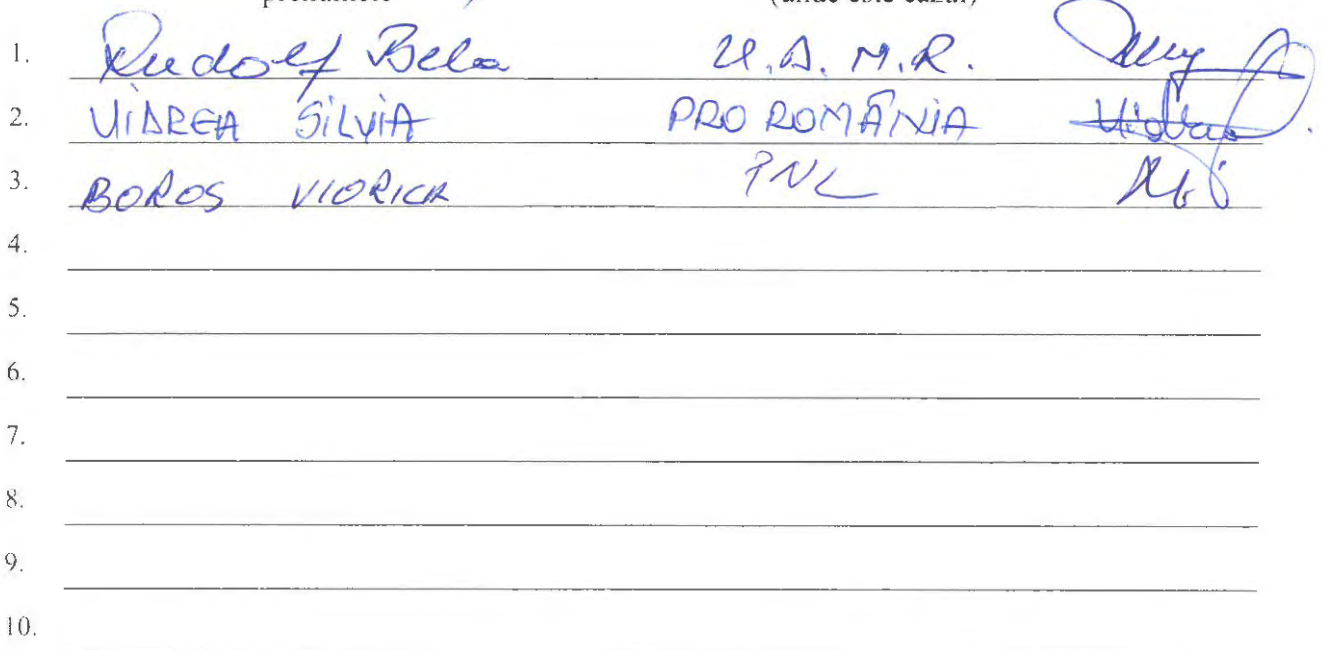 prenumele (unde este cazul)
1. Rudolf Bela U.D.M.R.
2. VIDREA SILVIA PRO ROMÂNIA
3. BOROS VIORICA PNL
4.
5.
6.
7.
8.
9.
10.